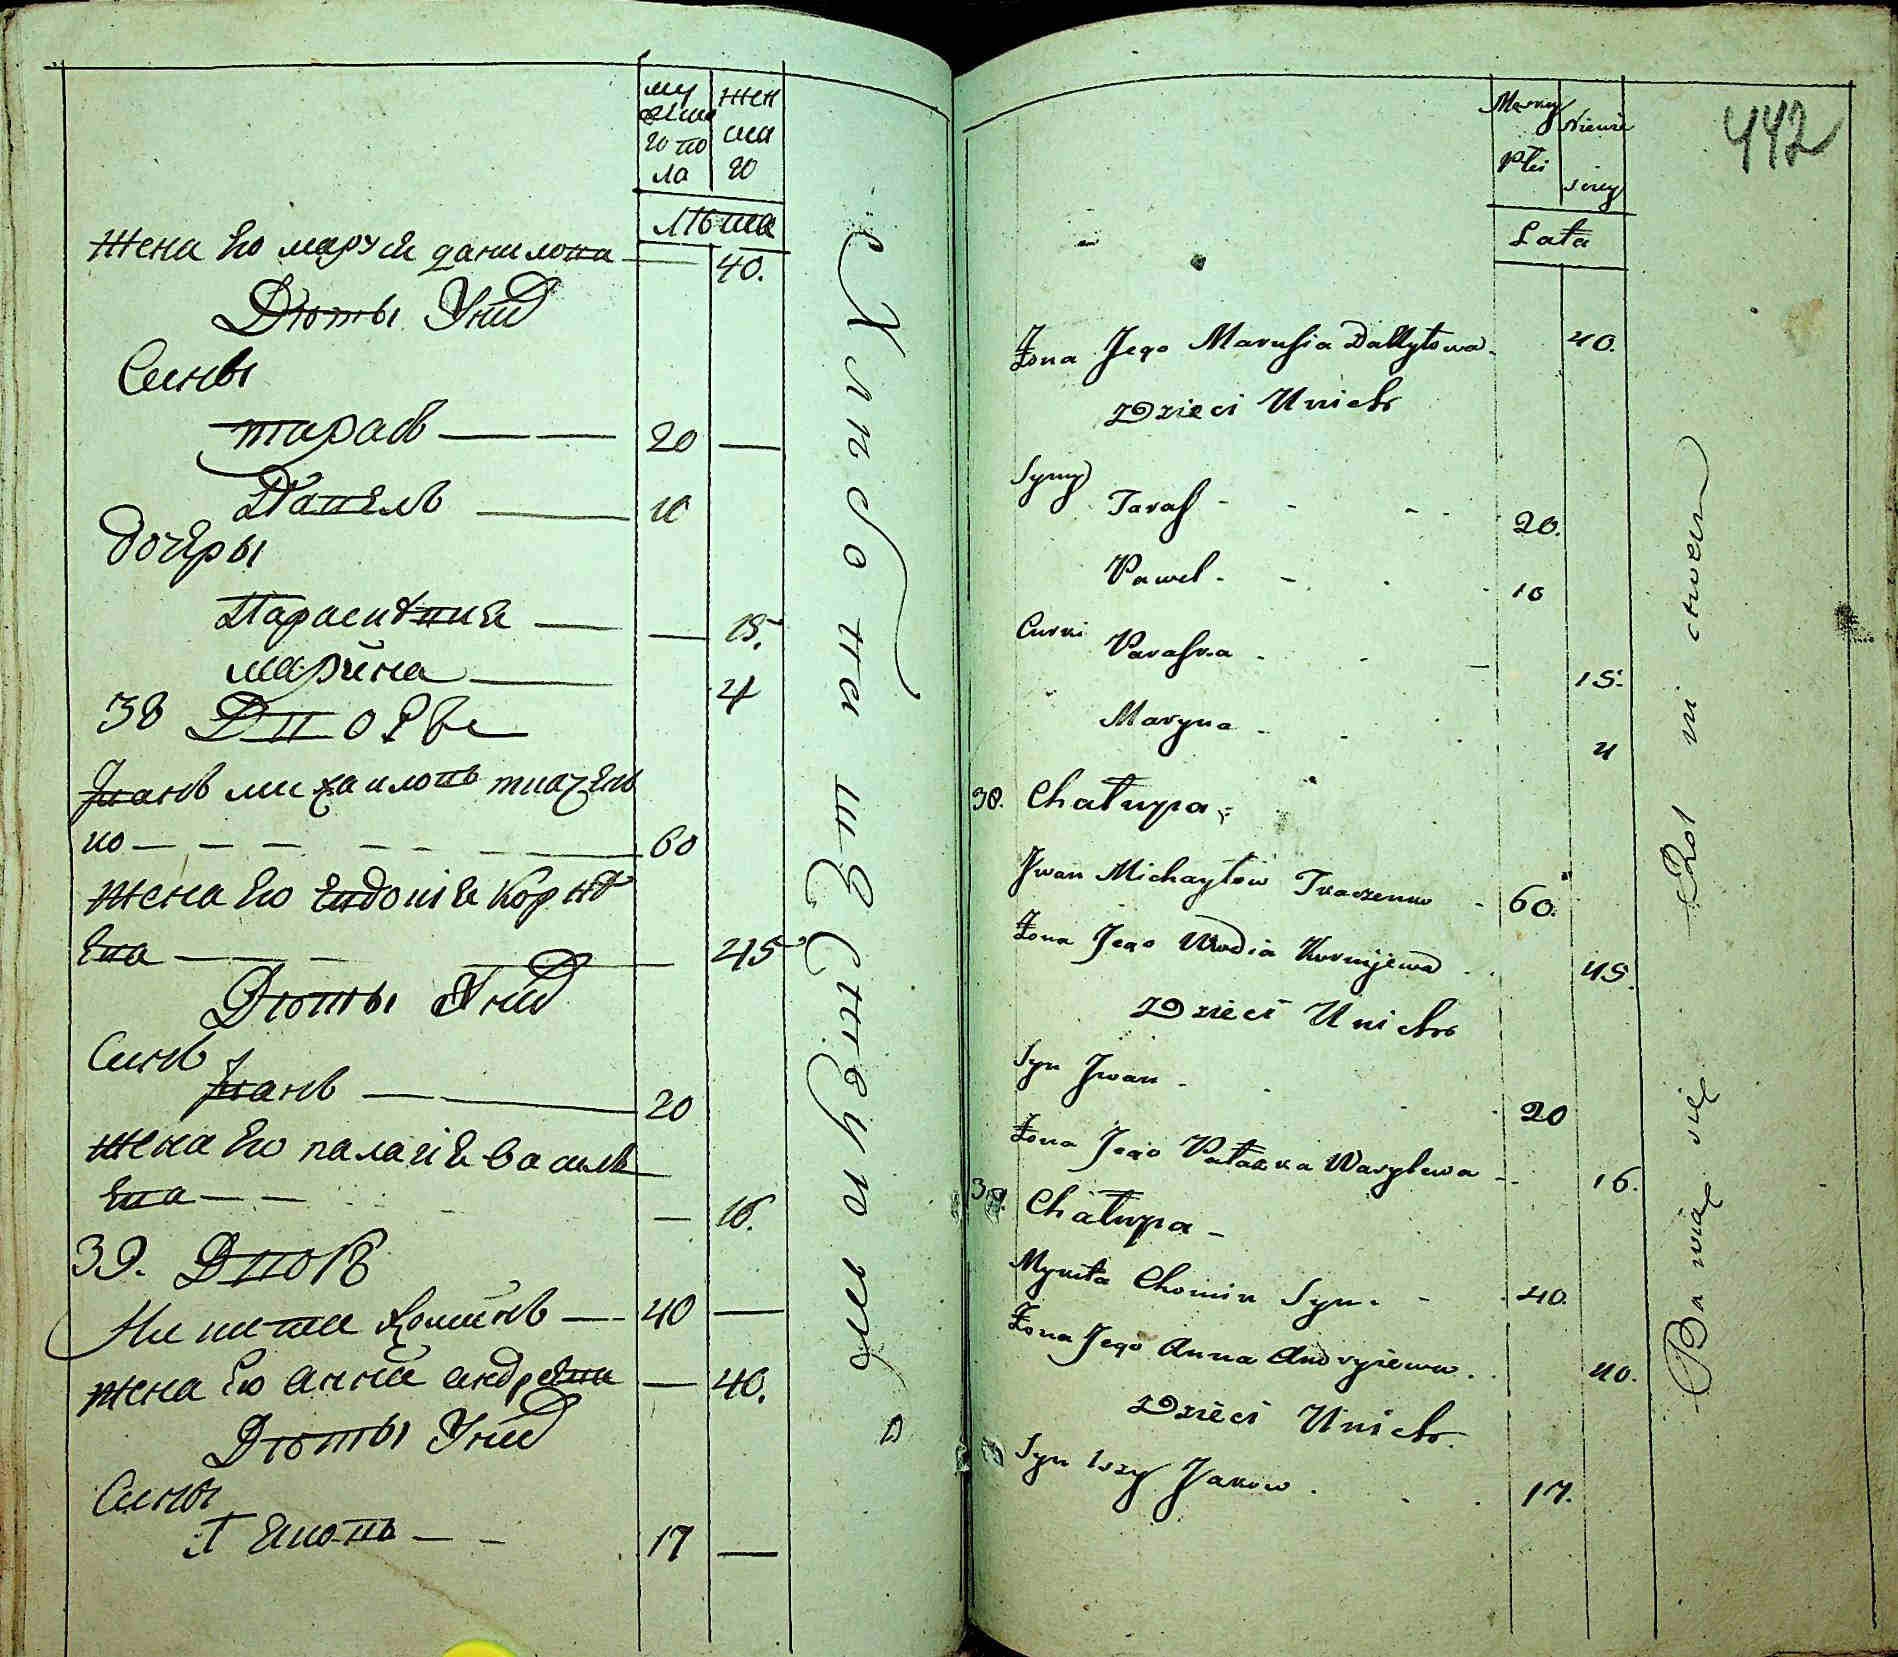 му жен
жеска ска
го по го
ла
лѣта
Жена Его марусѣ данилова 40.
Дѣты Уних
Сины
тарасъ 20
Павелъ 10
дочеры
Парасковие 15.
марина 4
38 Дворъ
Иванъ михаиловъ ткачен
ко 60
Жена Его Евдокіе Корнѣ
ева 45
Дѣты Уних
Синъ
Иванъ 20
Жена Его палагіе Василь
ева 16.
39. Дворъ
Никита Хоминъ 40
жена Его анна андреева 40.
Дѣты Уних
Сины
1 Яковъ 17
Хлѣбопашествуютъ
442
Męzkiey Niewie
Płci sciey
Lata
Żona Jego Marusia Daniłowa 40.
Dzieci Unich
Syny
Taras 20.
Paweł 10
Curki
Paraska 15.
Maryna 4
38. Chałupa
Jwan Michayłow Tkaczenko 60.
Żona Jego Wodia Kornijewa 45.
Dzieci Unich
Syn Jwan 20
Żona Jego Pałazka Wasylewa 16.
39. Chałupa
Mykita Chomin Syn 40.
Żona Jego Anna Andryiewa 40.
Dzieci Unich
Syn 1szy Jakow 17.
Bawią się Rolnictwem